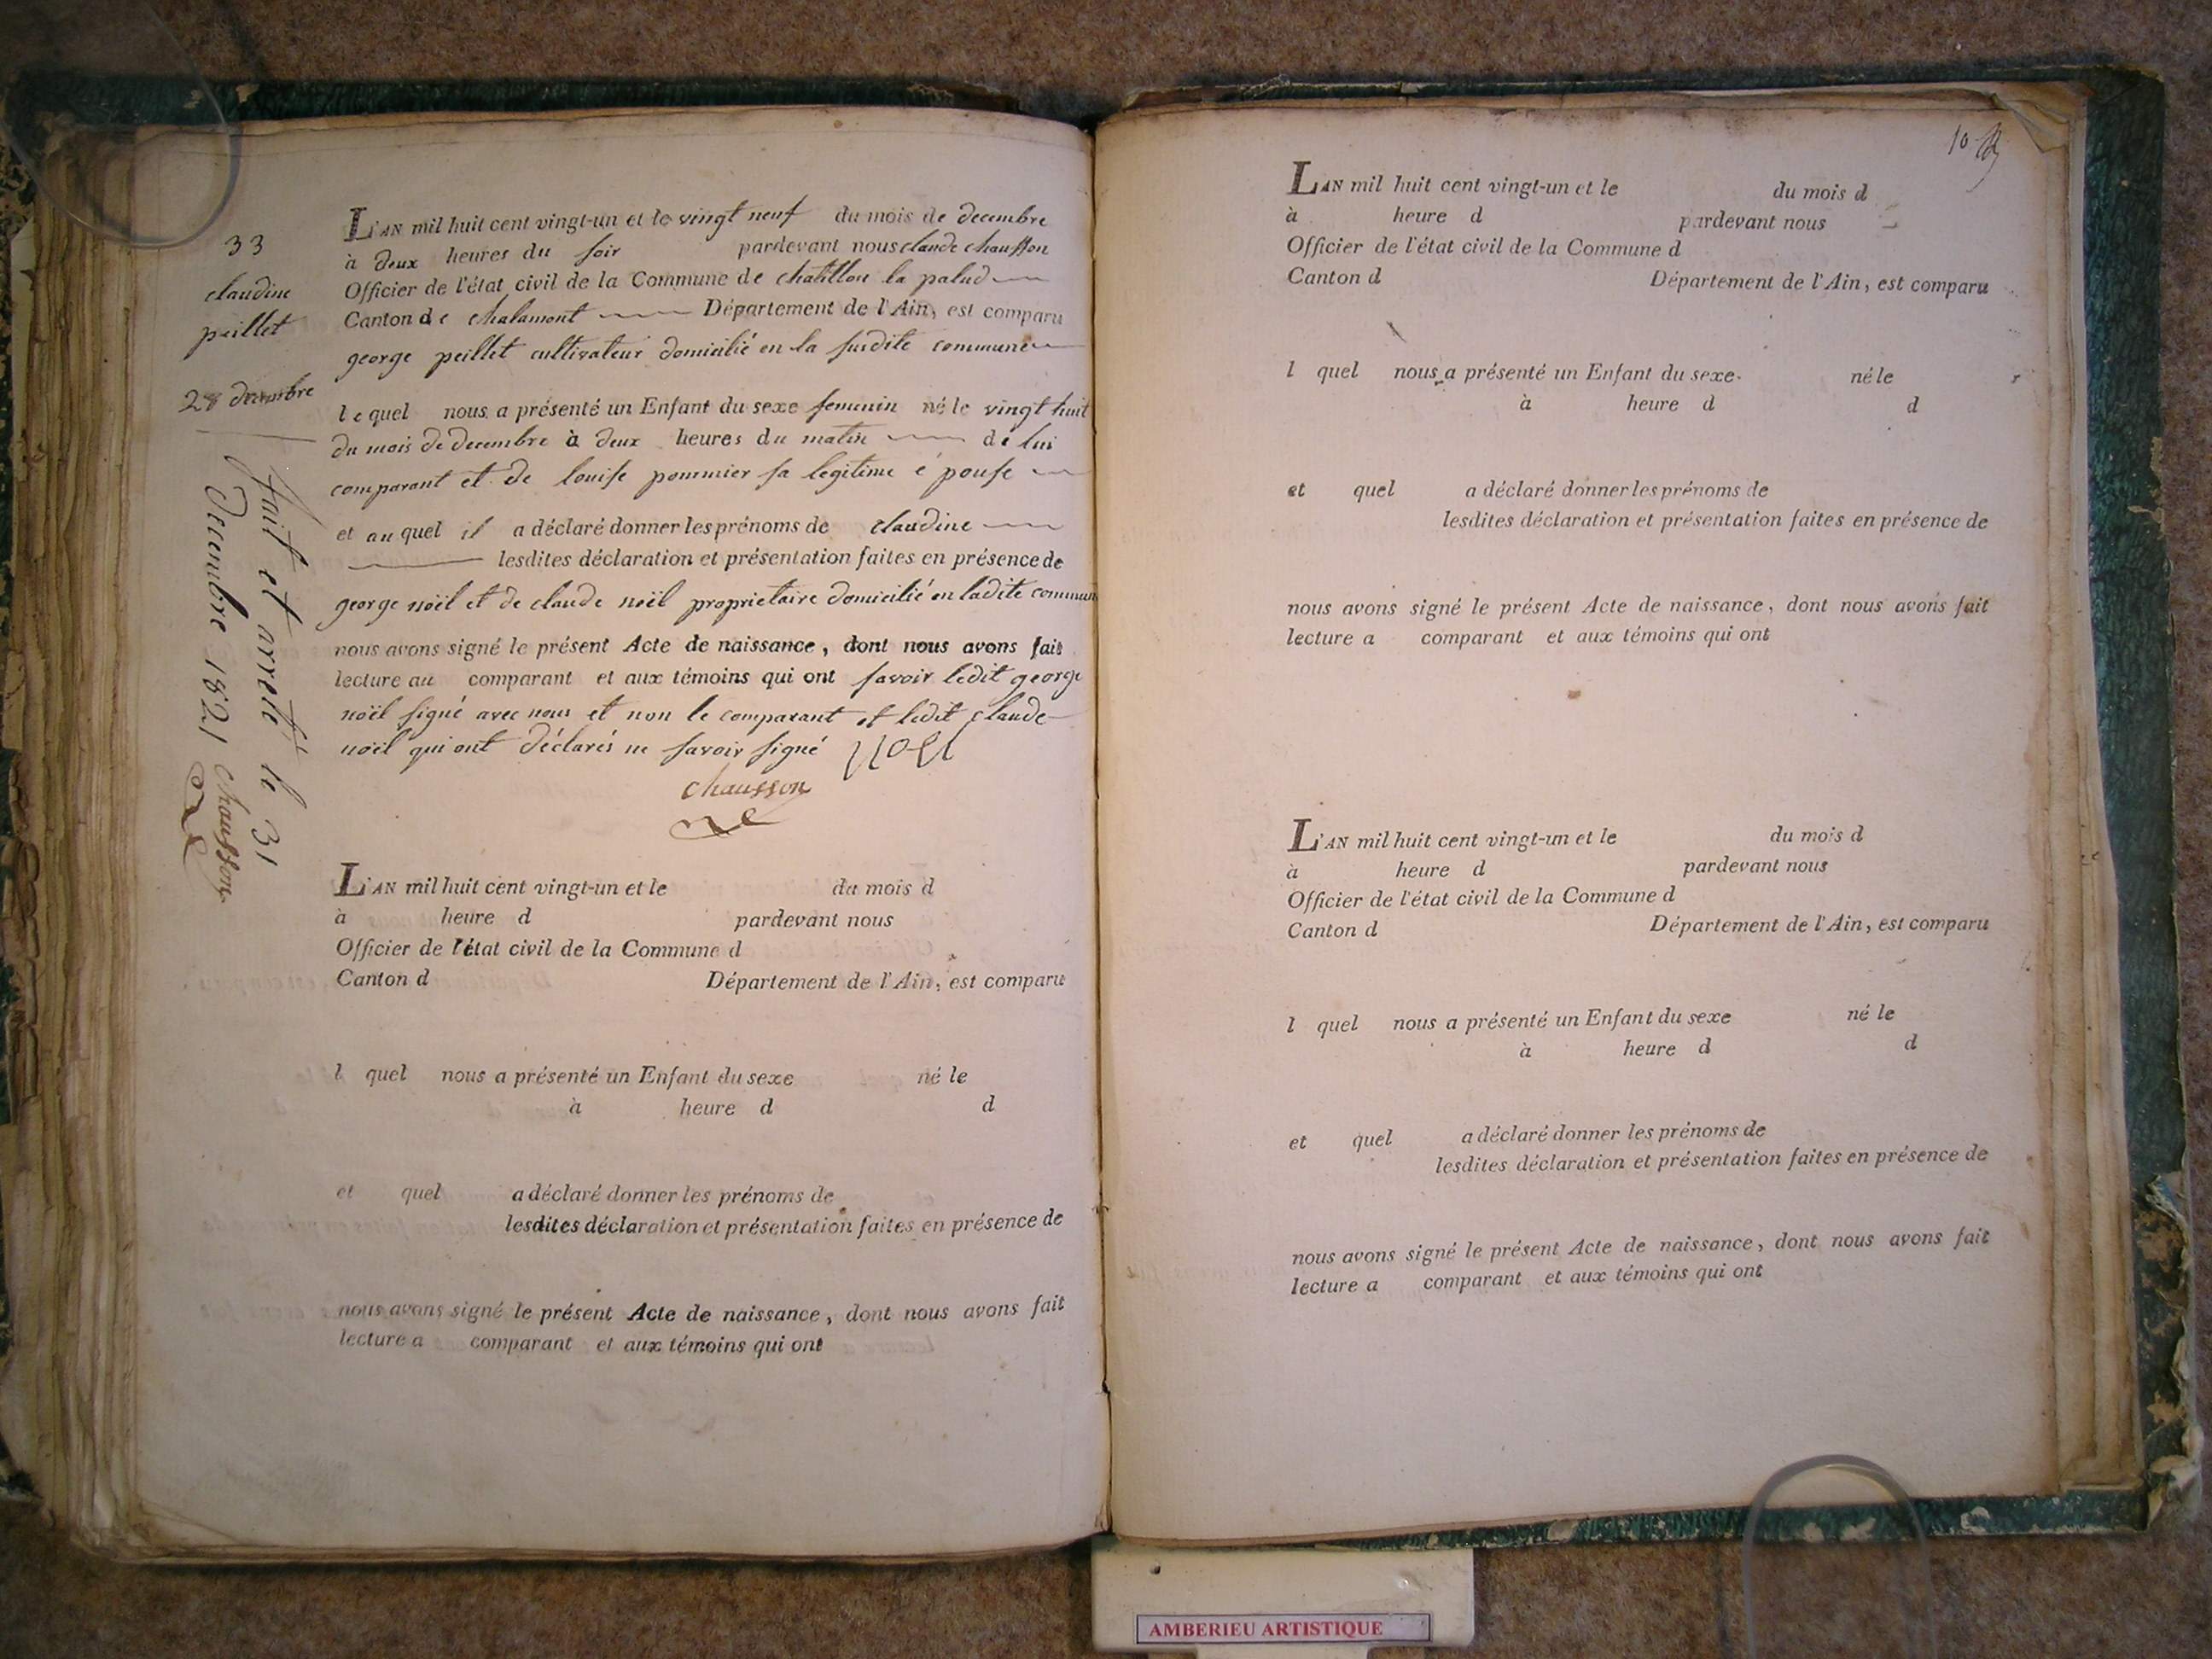 33
claudine
peillet
28 decembre
fait et arreté le 31
Decembre 1821 chausson
L'AN mil huit cent vingt-un et le vingt neuf du mois de decembre
à deux heures du soir pardevant nous claude chausson
Officier de l'état civil de la Commune de chatillon la palud
Canton de chalamont Département de l'Ain, est comparu
george peillet cultivateur domicilié en la susdite commune
lequel nous a présenté un Enfant du sexe feminin né le vingt huit
du mois de decembre à deux heures du matin de lui
comparant et de louise pommier sa legitime épouse
et au quel il a déclaré donner les prénoms de claudine
lesdites déclaration et présentation faites en présence de
george noël et de claude noël proprietaire domicilié en ladite commun
nous avons signé le présent Acte de naissance, dont nous avons fait
lecture au comparant et aux témoins qui ont savoir ledit george
noël signé avec nous et non le comparant et ledit claude
noël qui ont déclarés ne savoir signé noel
chausson
L'AN mil huit cent vingt-un et le du mois d
à heure d pardevant nous
Officier de l'état civil de la Commune d
Canton d Département de l'Ain, est comparu
l quel nous a présenté un Enfant du sexe né le
à heure d d
et quel a déclaré donner les prénoms de
lesdites déclaration et présentation faites en présence de
nous avons signé le présent Acte de naissance, dont nous avons fait
lecture a comparant et aux témoins qui ont
10
L'AN mil huit cent vingt-un et le du mois d
à heure d pardevant nous
Officier de l'état civil de la Commune d
Canton d Département de l'Ain, est comparu
l quel nous a présenté un Enfant du sexe né le
à heure d d
et quel a déclaré donner les prénoms de
lesdites déclaration et présentation faites en présence de
nous avons signé le présent Acte de naissance, dont nous avons fait
lecture a comparant et aux témoins qui ont
L'AN mil huit cent vingt-un et le du mois d
à heure d pardevant nous
Officier de l'état civil de la Commune d
Canton d Département de l'Ain, est comparu
l quel nous a présenté un Enfant du sexe né le
à heure d d
et quel a déclaré donner les prénoms de
lesdites déclaration et présentation faites en présence de
nous avons signé le présent Acte de naissance, dont nous avons fait
lecture a comparant et aux témoins qui ont
AMBERIEU ARTISTIQUE